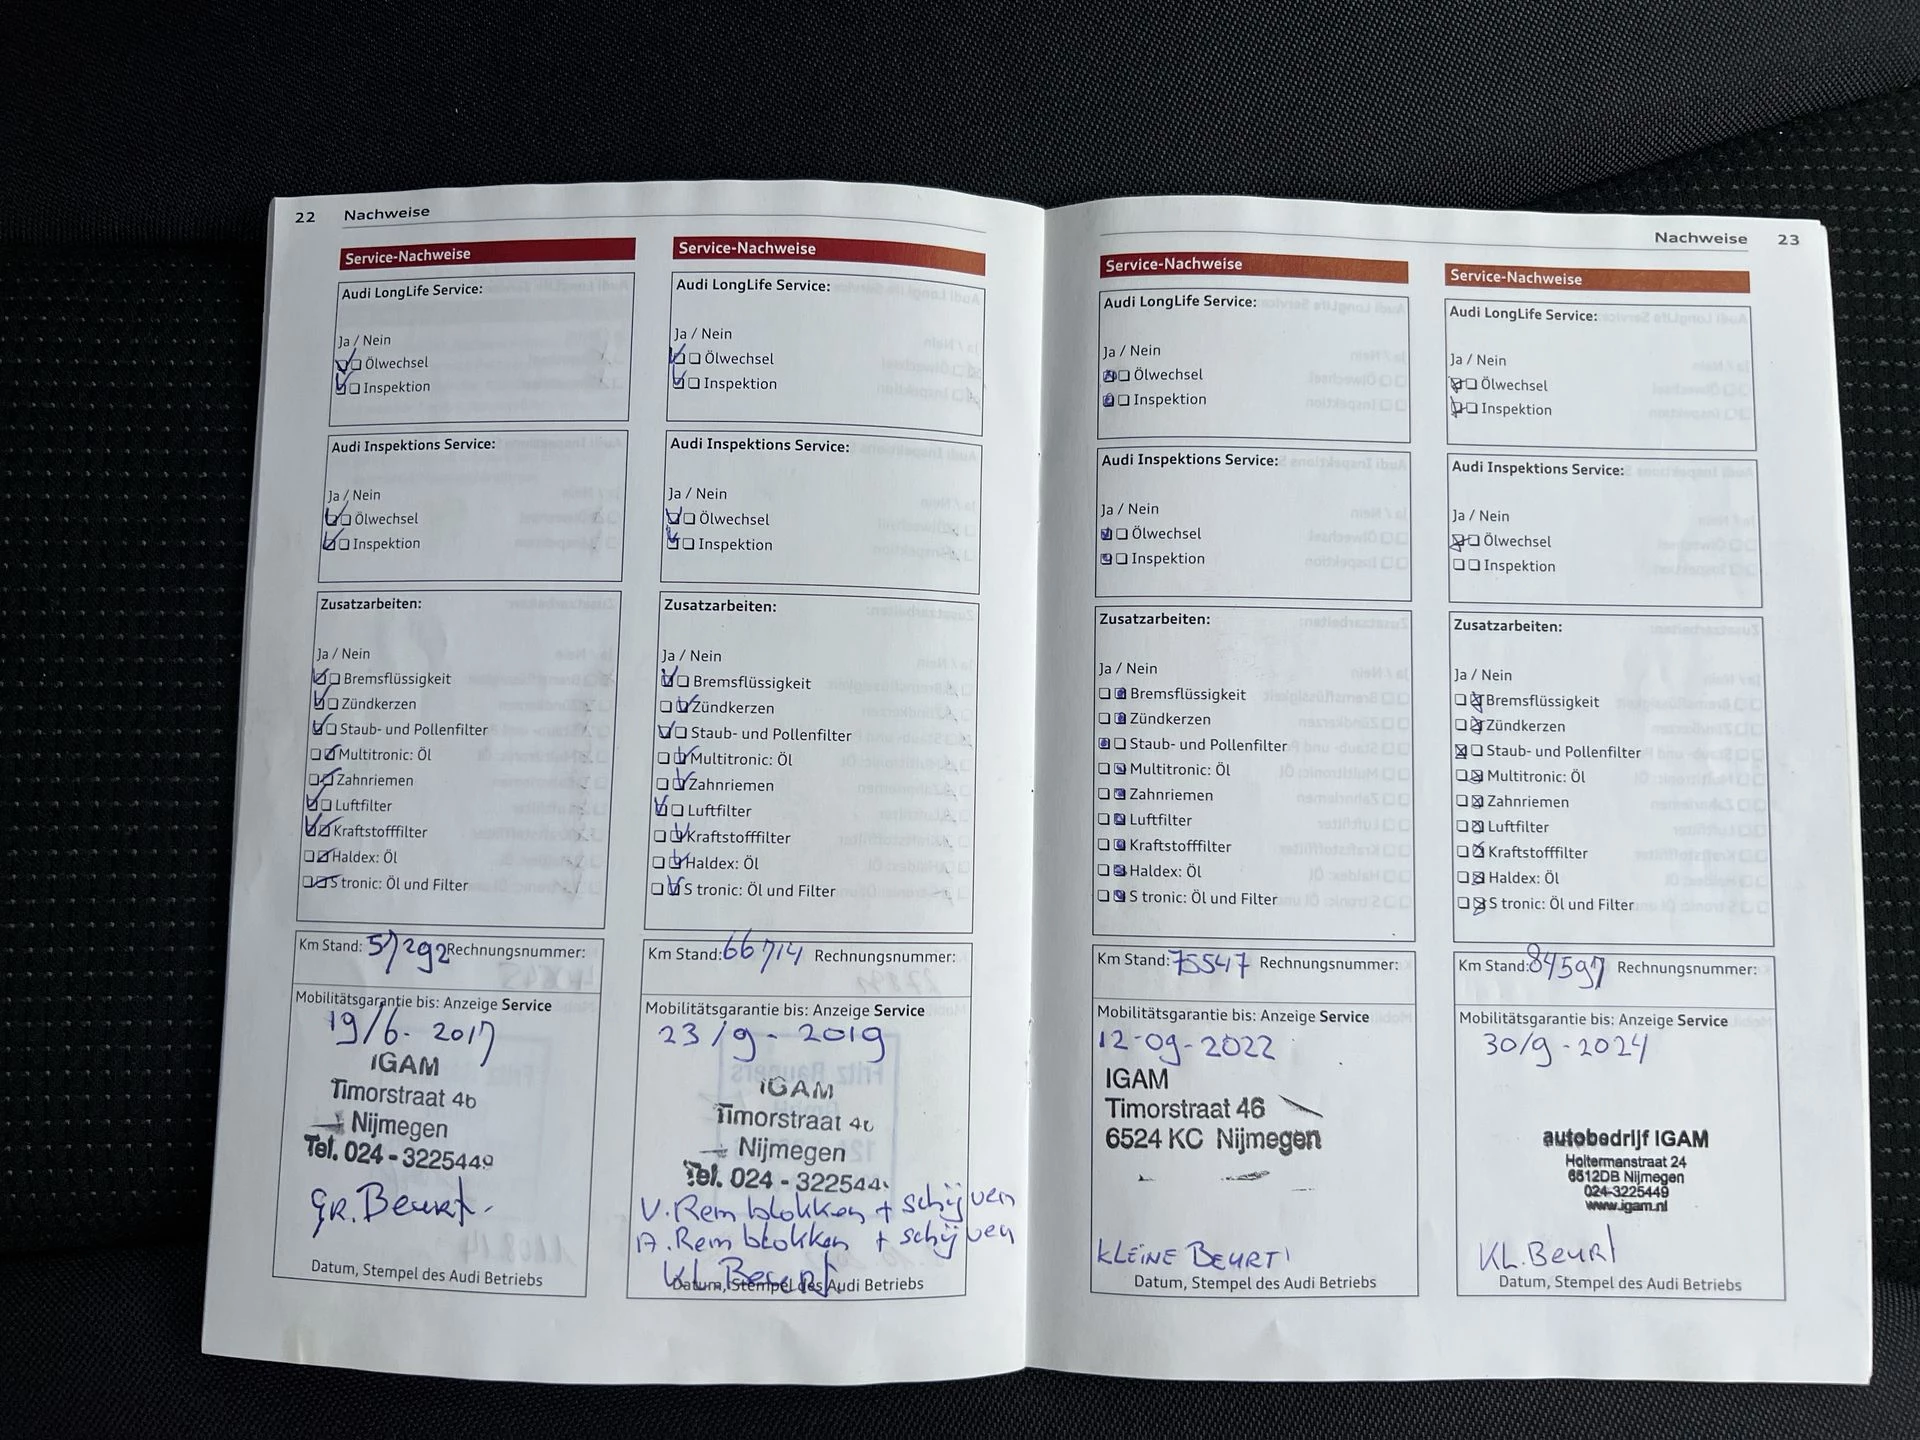 22 Nachweise
Service-Nachweise
Audi LongLife Service:
Ja / Nein
Ölwechsel
Inspektion
Audi Inspektions Service:
Ja / Nein
Ölwechsel
Inspektion
Zusatzarbeiten:
Ja / Nein
Bremsflüssigkeit
Zündkerzen
Staub- und Pollenfilter
Multitronic: Öl
Zahnriemen
Luftfilter
Kraftstofffilter
Haldex: Öl
S tronic: Öl und Filter
Km Stand: 57292 Rechnungsnummer:
Mobilitätsgarantie bis: Anzeige Service
19/6-2017
IGAM
Timorstraat 46
Nijmegen
Tel. 024-3225449
GR. Beurt.
Datum, Stempel des Audi Betriebs
Service-Nachweise
Audi LongLife Service:
Ja / Nein
Ölwechsel
Inspektion
Audi Inspektions Service:
Ja / Nein
Ölwechsel
Inspektion
Zusatzarbeiten:
Ja / Nein
Bremsflüssigkeit
Zündkerzen
Staub- und Pollenfilter
Multitronic: Öl
Zahnriemen
Luftfilter
Kraftstofffilter
Haldex: Öl
S tronic: Öl und Filter
Km Stand: 66714 Rechnungsnummer:
Mobilitätsgarantie bis: Anzeige Service
23/9-2019
IGAM
Timorstraat
Nijmegen
Tel. 024-322544
V. Remblokken + schijven
A. Remblokken + schijven
KL. Beurt.
Datum, Stempel des Audi Betriebs
Nachweise 23
Service-Nachweise
Audi LongLife Service:
Ja / Nein
Ölwechsel
Inspektion
Audi Inspektions Service:
Ja / Nein
Ölwechsel
Inspektion
Zusatzarbeiten:
Ja / Nein
Bremsflüssigkeit
Zündkerzen
Staub- und Pollenfilter
Multitronic: Öl
Zahnriemen
Luftfilter
Kraftstofffilter
Haldex: Öl
S tronic: Öl und Filter
Km Stand: 75547 Rechnungsnummer:
Mobilitätsgarantie bis: Anzeige Service
12-09-2022
IGAM
Timorstraat 46
6524 KC Nijmegen
KLEINE BEURT
Datum, Stempel des Audi Betriebs
Service-Nachweise
Audi LongLife Service:
Ja / Nein
Ölwechsel
Inspektion
Audi Inspektions Service:
Ja / Nein
Ölwechsel
Inspektion
Zusatzarbeiten:
Ja / Nein
Bremsflüssigkeit
Zündkerzen
Staub- und Pollenfilter
Multitronic: Öl
Zahnriemen
Luftfilter
Kraftstofffilter
Haldex: Öl
S tronic: Öl und Filter
Km Stand: 84597 Rechnungsnummer:
Mobilitätsgarantie bis: Anzeige Service
30/9-2024
autobedrijf IGAM
Holtermanstraat 24
6512DB Nijmegen
024-3225449
www.igam.nl
KL. Beurt
Datum, Stempel des Audi Betriebs